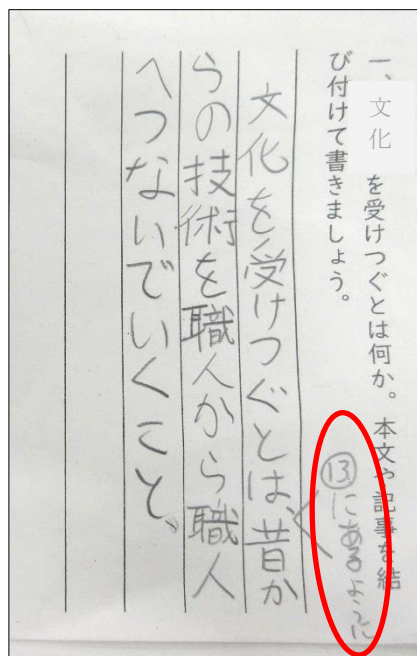 一、文化を受けつぐとは何か。本文や記事を結
び付けて書きましょう。
⑬にあるように
文化を受けつぐとは、昔か
らの技術を職人から職人
へつないでいくこと、